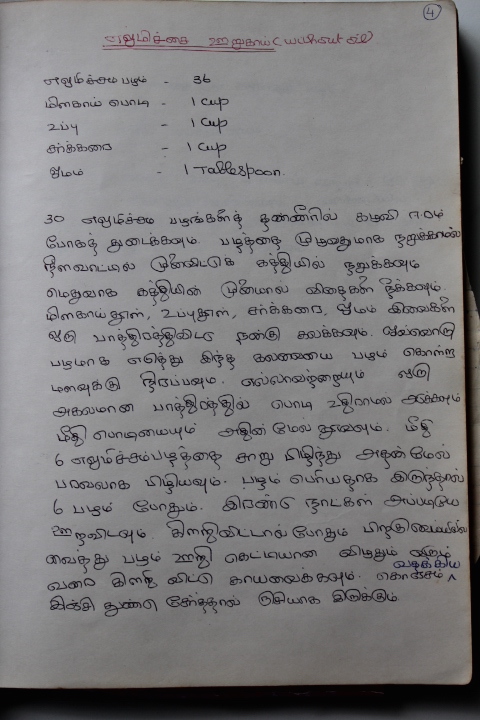 4
எலுமிச்சை ஊறுகாய் (without oil)
எலுமிச்சம்பழம் - 36
மிளகாய் பொடி - 1 cup
உப்பு - 1 cup
சர்க்கரை - 1 cup
ஓமம் - 1 Tablespoon.
30 எலுமிச்சம் பழங்களைத் தண்ணீரில் கழுவி ஈரம்
போகத் துடைக்கவும். பழத்தை முழுவதுமாக நறுக்காமல்
நீளவாட்டில் முனைவிட்டுக் கத்தியில் நறுக்கவும்
மெதுவாக கத்தியின் முனையால் விதைகளை நீக்கவும்.
மிளகாய்தூள், உப்புதூள், சர்க்கரை, ஓமம் இவைகளை
ஒரு பாத்திரத்திலிட்டு நன்கு கலக்கவும். ஒவ்வொரு
பழமாக எடுத்து இந்த கலவையை பழம் கொள்ளு
மளவுக்கு நிரப்பவும். எல்லாவற்றையும் ஒரு
அகலமான பாத்திரத்தில் பொடி உதிராமல் அடுக்கவும்
மீதி பொடியையும் அதின் மேல் தூவவும். மீதி
6 எலுமிச்சம்பழத்தை சாறு பிழிந்து அதன் மேல்
பரவலாக பிழியவும். பழம் பெரியதாக இருந்தால்
6 பழம் போதும். இரண்டு நாட்கள் அப்படியே
ஊறவிடவும். கிளறிவிட்டால் போதும் பிறகு வெய்யிலில்
வைத்து பழம் ஊறி கெட்டியான விழுதும் வரும்
வரை கிளறி விட்டு காயவைக்கவும். கொஞ்சம் ^ வதக்கிய
இஞ்சி துண்டு சேர்த்தால் ருசியாக இருக்கும்